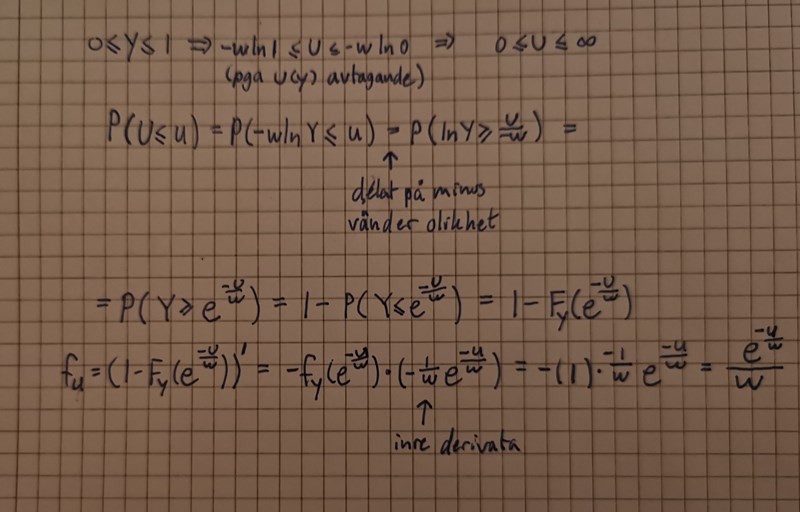 0 ≤ Y ≤ 1 ⇒ -w ln 1 ≤ U ≤ -w ln 0 ⇒ 0 ≤ U ≤ ∞
(pga U(y) avtagande)
P(U ≤ u) = P(-w ln Y ≤ u) = P(ln Y ≥ u/-w) =
↑
delat på minus
vänder olikhet
= P(Y ≥ e^(-u/w)) = 1 - P(Y ≤ e^(-u/w)) = 1 - F_y(e^(-u/w))
f_u = (1 - F_y(e^(-u/w)))' = -f_y(e^(-u/w)) · (-1/w e^(-u/w)) = -(1) · -1/w e^(-u/w) = e^(-u/w)/w
↑
inre derivata